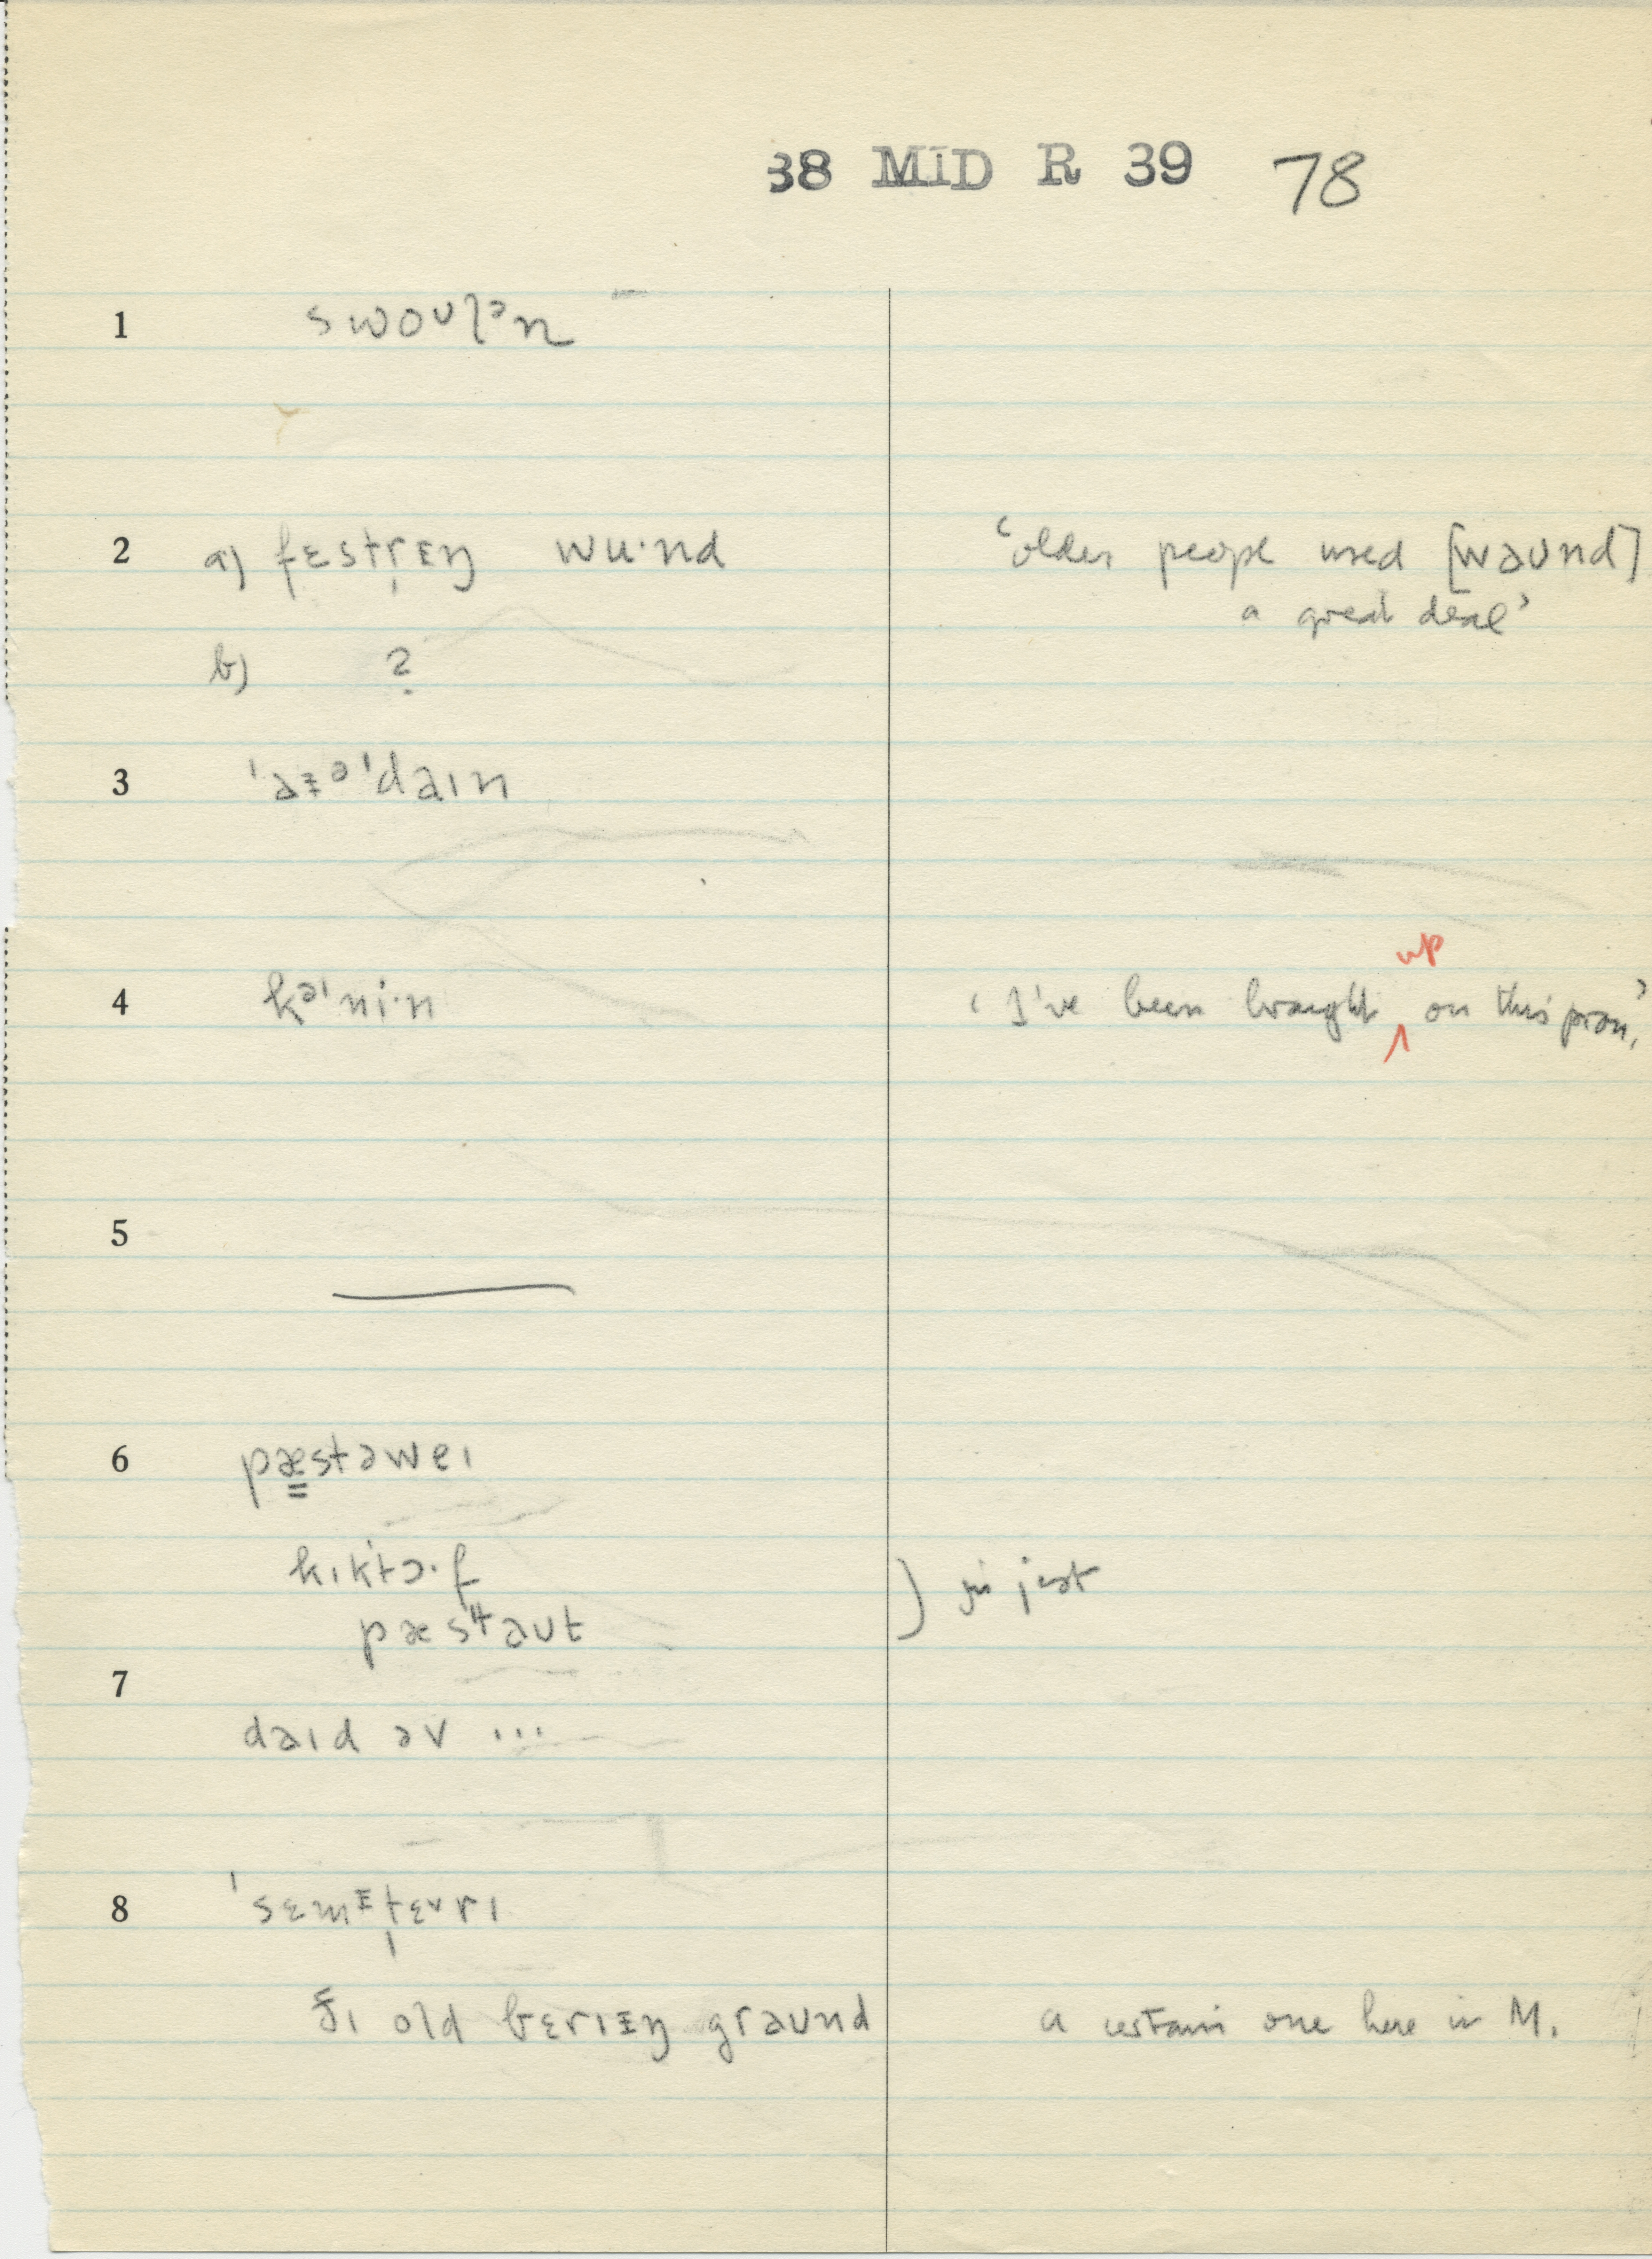 38 MID R 39 78
1 swoᴜlᵊn
2 a) fɛstr̩ɪŋ wu·nd ‘older people used [wəᴜnd]
a great deal’
b) ?
3 'aɪᵊ'daɪn
4 kᵊɪni·n ‘I've been brought up on this pron.’
5
6 pæstəweɪ
kɪktɔ·f ) in jest
pæstaᴜt
7
daɪd əv ...
8 'sɛmɪtɛrɪ
ðɪ old bɛrɪɪŋ graᴜnd a certain one here in M.